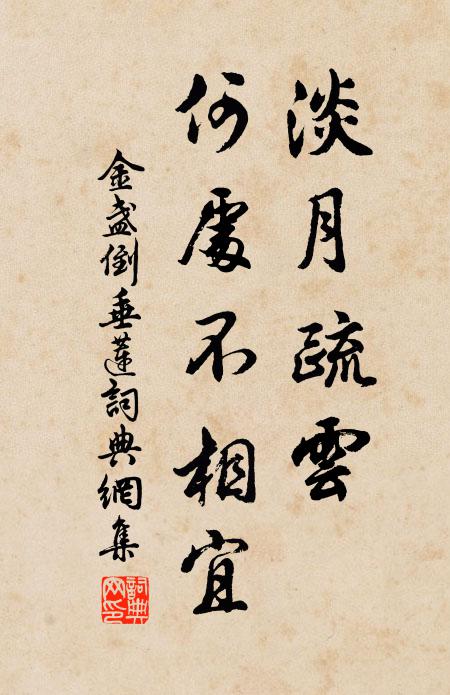 淡月疏雲
何處不相宜
金盞倒垂蓮詞典網集
詞典
网印